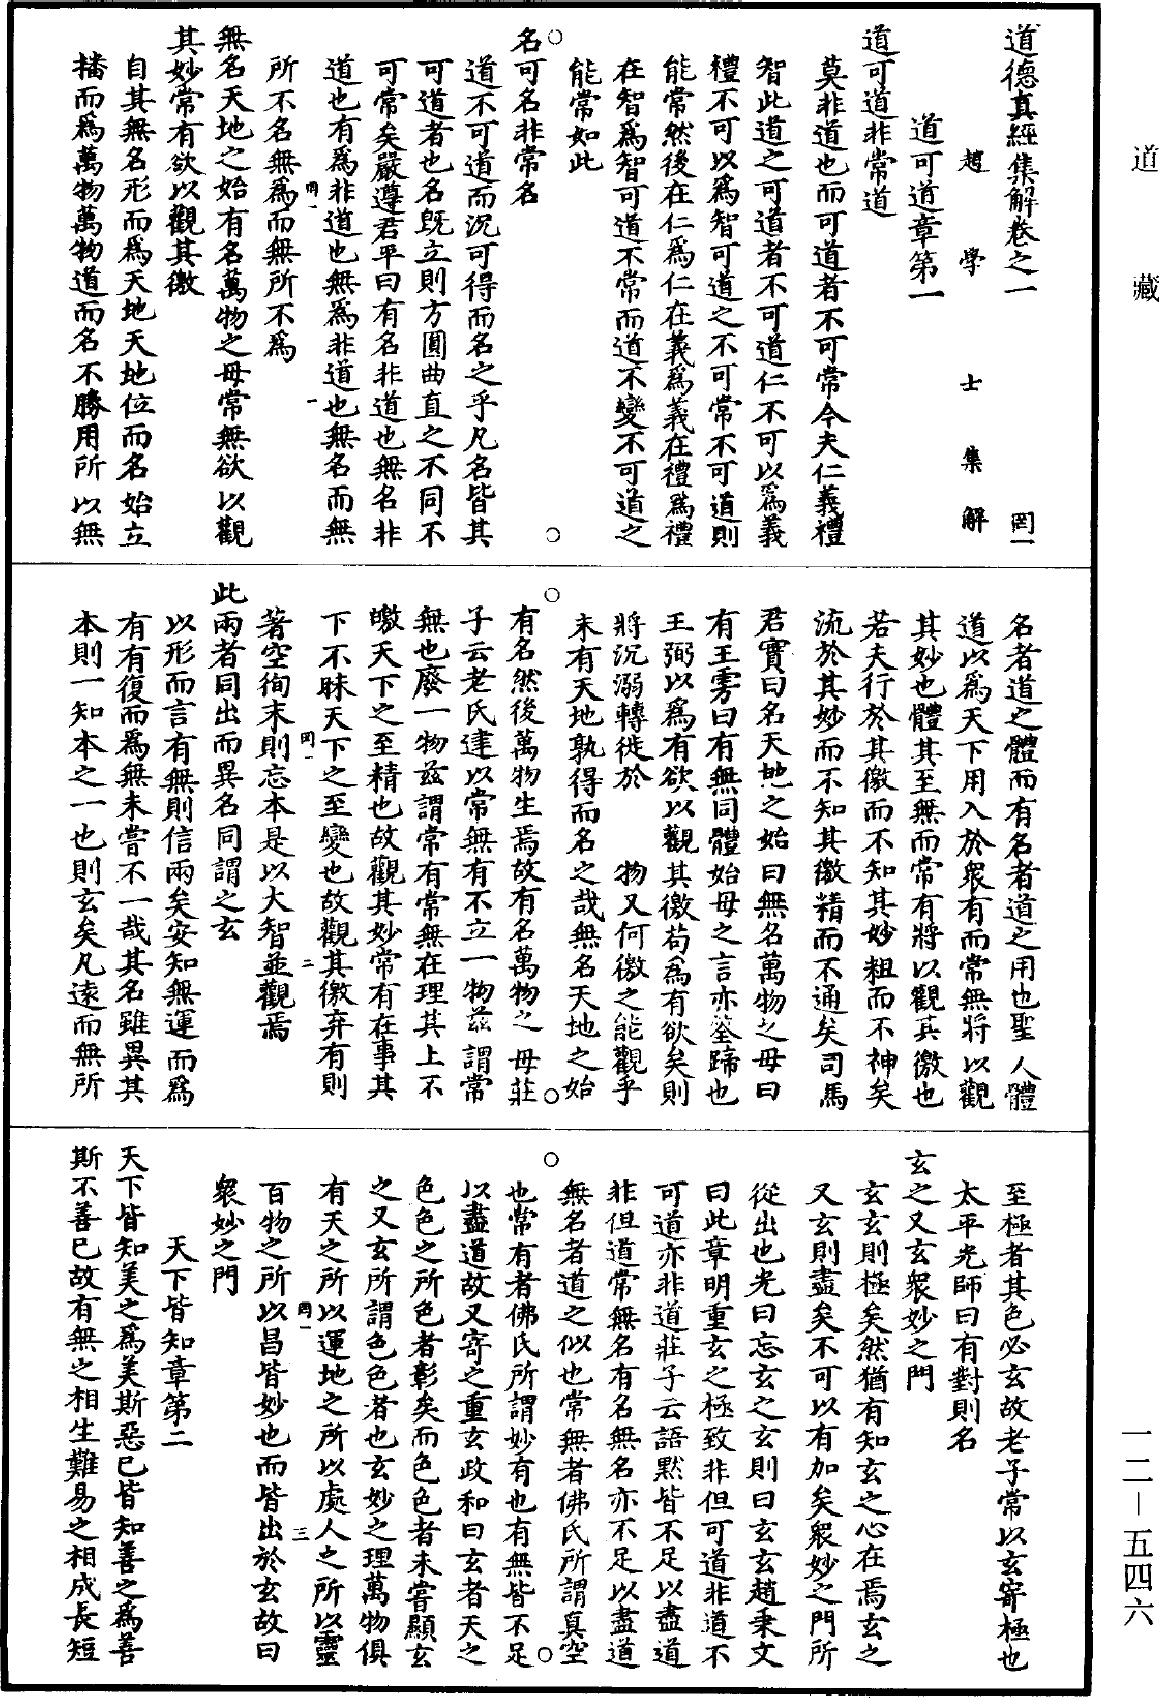 道藏
一二—五四六
道德真經集解卷之一 罔一
趙學士集解
道可道章第一
道可道非常道
莫非道也而可道者不可常今夫仁義禮
智此道之可道者不可道仁不可以爲義
禮不可以爲智可道之不可常不可道則
能常然後在仁爲仁在義爲義在禮爲禮
在智爲智可道不常而道不變不可道之
能常如此
名可名非常名
道不可道而況可得而名之乎凡名皆其
可道者也名既立則方圓曲直之不同不
可常矣嚴遵君平曰有名非道也無名非
道也有爲非道也無爲非道也無名而無
所不名無爲而無所不爲
罔一 一
無名天地之始有名萬物之母常無欲以觀
其妙常有欲以觀其徼
自其無名形而爲天地天地位而名始立
播而爲萬物萬物道而名不勝用所以無
名者道之體而有名者道之用也聖人體
道以爲天下用入於衆有而常無將以觀
其妙也體其至無而常有將以觀其徼也
若夫行於其徼而不知其妙粗而不神矣
流於其妙而不知其徼精而不通矣司馬
君實曰名天地之始曰無名萬物之母曰
有王雱曰有無同體始母之言亦筌蹄也
王弼以爲有欲以觀其徼苟爲有欲矣則
將沉溺轉徙於 物又何徼之能觀乎
未有天地孰得而名之哉無名天地之始
有名然後萬物生焉故有名萬物之母莊
子云老氏建以常無有不立一物茲謂常
無也廢一物茲謂常有常無在理其上不
皦天下之至精也故觀其妙常有在事其
下不昧天下之至變也故觀其徼弃有則
罔一 二
著空徇末則忘本是以大智並觀焉
此兩者同出而異名同謂之玄
以形而言有無則信兩矣安知無運而爲
有有復而爲無未嘗不一哉其名雖異其
本則一知本之一也則玄矣凡遠而無所
至極者其色必玄故老子常以玄寄極也
太平光師曰有對則名
玄之又玄衆妙之門
玄玄則極矣然猶有知玄之心在焉玄之
又玄則盡矣不可以有加矣衆妙之門所
從出也光曰忘玄之玄則曰玄玄趙秉文
曰此章明重玄之極致非但可道非道不
可道亦非道莊子云語默皆不足以盡道
非但道常無名有名無名亦不足以盡道
無名者道之似也常無者佛氏所謂真空
也常有者佛氏所謂妙有也有無皆不足
以盡道故又寄之重玄政和曰玄者天之
色色之所色者彰矣而色色者未嘗顯玄
之又玄所謂色色者也玄妙之理萬物俱
有天之所以運地之所以處人之所以靈
罔一 三
百物之所以昌皆妙也而皆出於玄故曰
衆妙之門
天下皆知章第二
天下皆知美之爲美斯惡已皆知善之爲善
斯不善已故有無之相生難易之相成長短